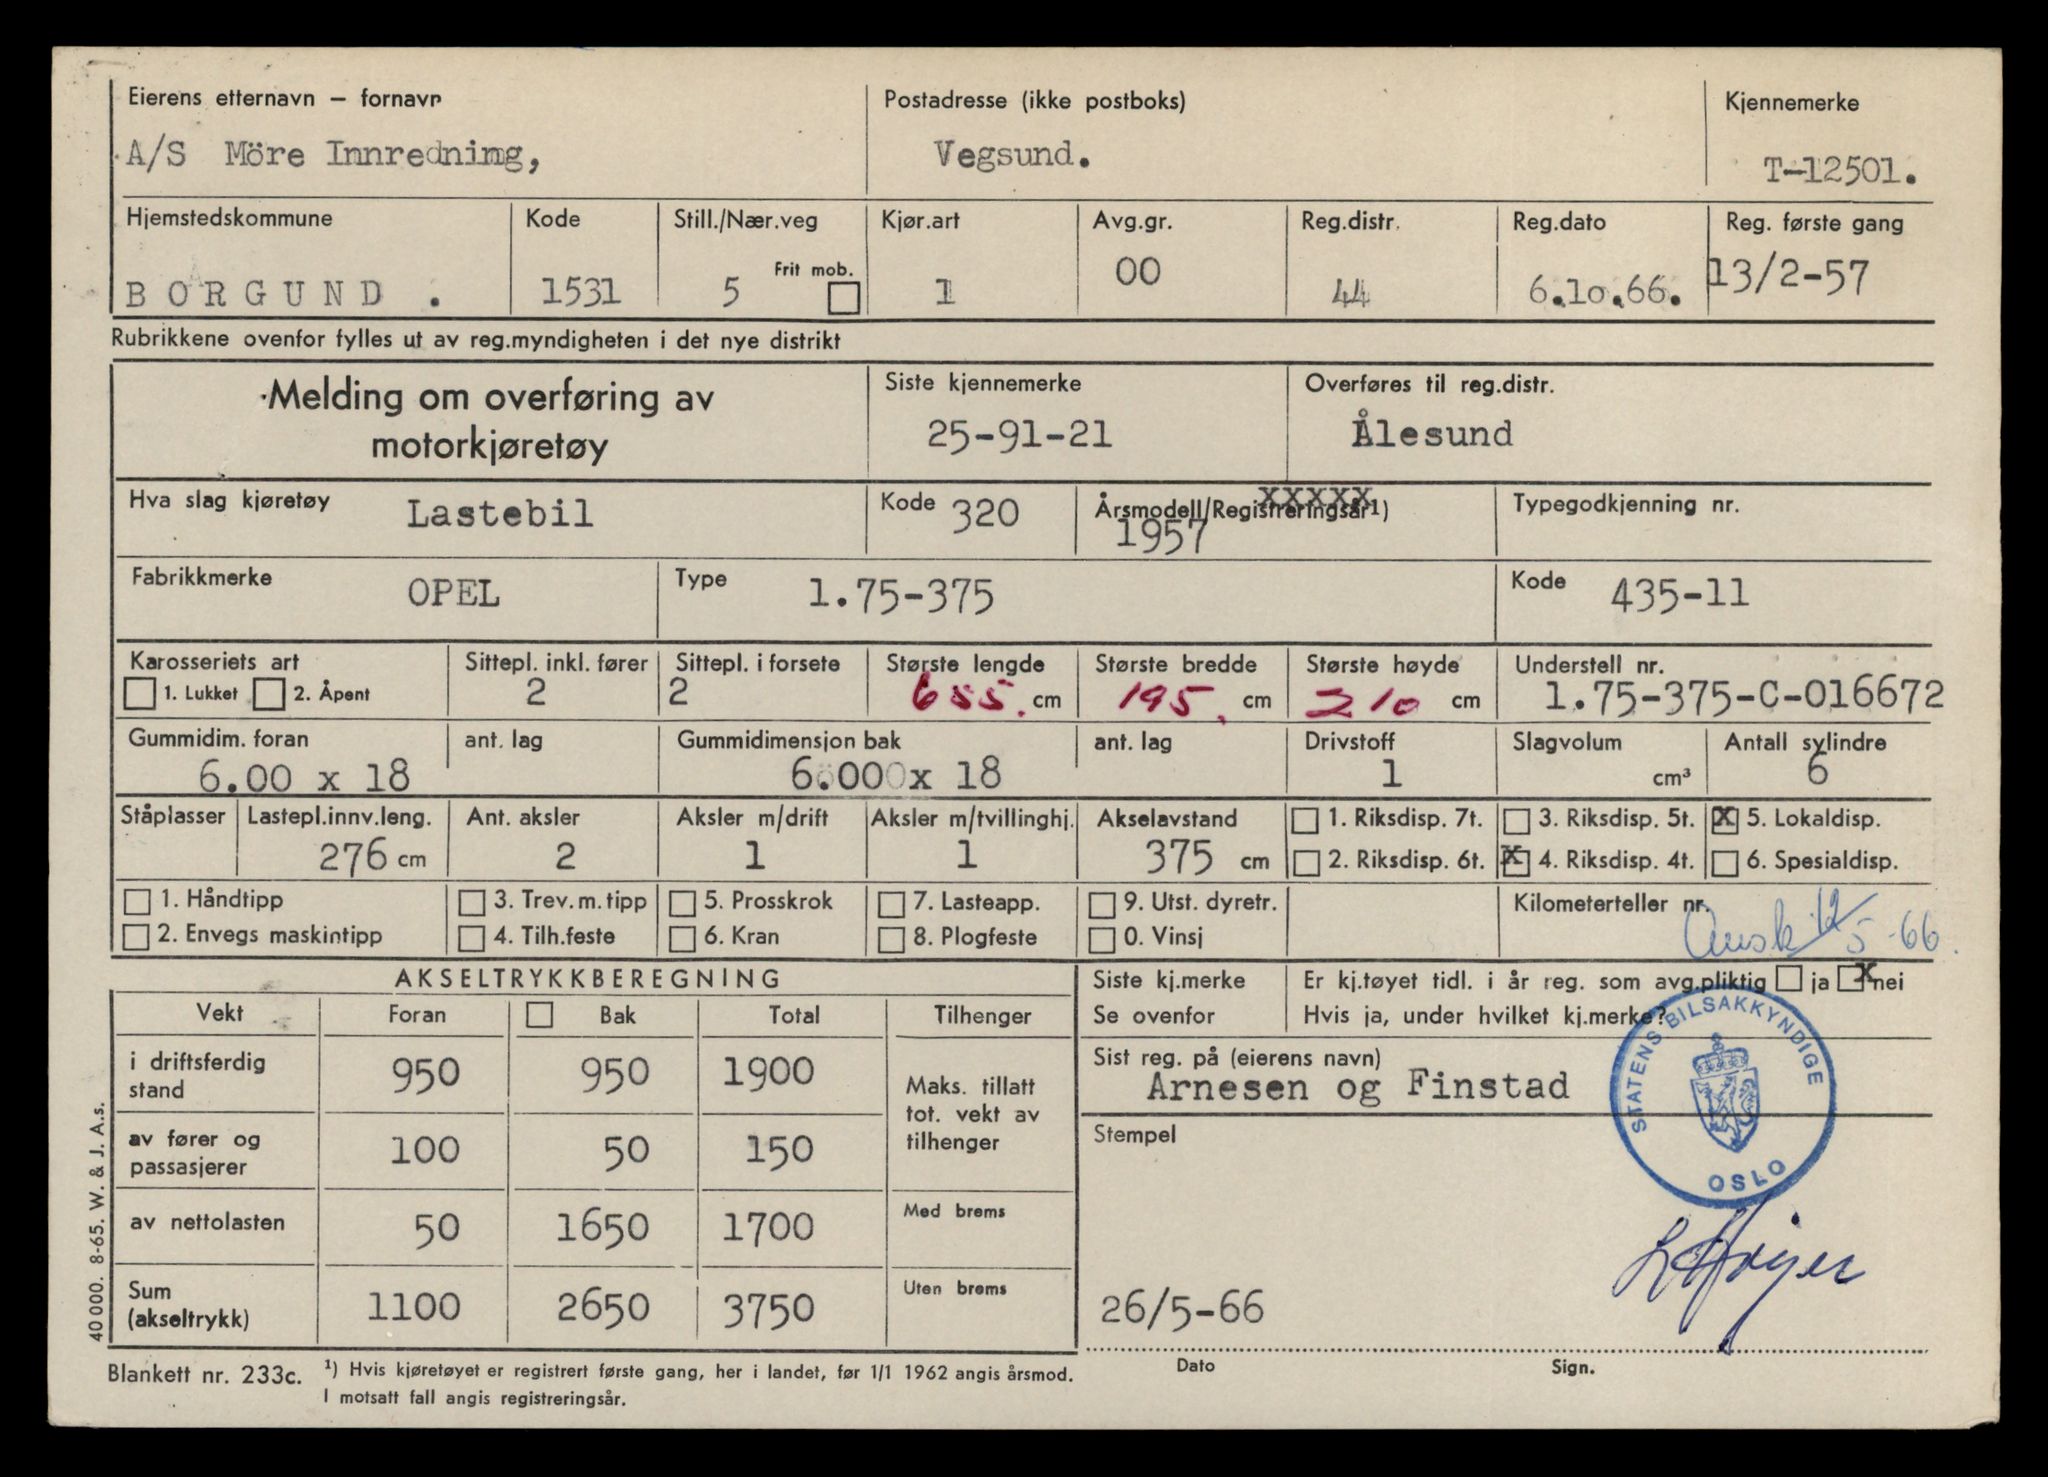 Eierens etternavn – fornavn Postadresse (ikke postboks) Kjennemerke
A/S Möre Innredning, Vegsund. T-12501.
Hjemstedskommune Kode Still./Nær.veg Kjør.art Avg.gr. Reg.distr. Reg.dato Reg. første gang
Frit mob.
BORGUND . 1531 5 1 00 44 6.10.66. 13/2-57
Rubrikkene ovenfor fylles ut av reg.myndigheten i det nye distrikt
Melding om overføring av
motorkjøretøy
Siste kjennemerke Overføres til reg.distr.
25-91-21 Ålesund
Hva slag kjøretøy Lastebil Kode 320 Årsmodell/Registreringsår¹) xxxxx Typegodkjenning nr.
1957
Fabrikkmerke OPEL Type 1.75-375 Kode 435-11
Karosseriets art Sittepl. inkl. fører Sittepl. i forsete Største lengde Største bredde Største høyde Understell nr.
1. Lukket 2. Åpent 2 2 655. cm 195. cm 210 cm 1.75-375-C-016672
Gummidim. foran ant. lag Gummidimensjon bak ant. lag Drivstoff Slagvolum Antall sylindre
6.00 x 18 6.000x 18 1 cm³ 6
Ståplasser Lastepl.innv.leng. Ant. aksler Aksler m/drift Aksler m/tvillinghj. Akselavstand 1. Riksdisp. 7t. 3. Riksdisp. 5t. x 5. Lokaldisp.
276 cm 2 1 1 375 cm 2. Riksdisp. 6t. x 4. Riksdisp. 4t. 6. Spesialdisp.
1. Håndtipp 3. Trev. m. tipp 5. Prosskrok 7. Lasteapp. 9. Utst. dyretr. Kilometerteller nr.
2. Envegs maskintipp 4. Tilh.feste 6. Kran 8. Plogfeste 0. Vinsj
12/5-66.
AKSELTRYKKBEREGNING
Vekt Foran Bak Total Tilhenger
i driftsferdig stand 950 950 1900
av fører og passasjerer 100 50 150
Maks. tillatt
tot. vekt av
tilhenger
av nettolasten 50 1650 1700 Med brems
Sum
(akseltrykk) 1100 2650 3750 Uten brems
Siste kj.merke Er kj.tøyet tidl. i år reg. som avg.pliktig ja x nei
Se ovenfor Hvis ja, under hvilket kj.merke?
Sist reg. på (eierens navn)
Arnesen og Finstad
STATENS BILSAKKYNDIGE
OSLO
Stempel
26/5-66
Dato Sign.
40 000. 8-65. W. & J. A.s.
Blankett nr. 233c. ¹) Hvis kjøretøyet er registrert første gang, her i landet, før 1/1 1962 angis årsmod.
I motsatt fall angis registreringsår.